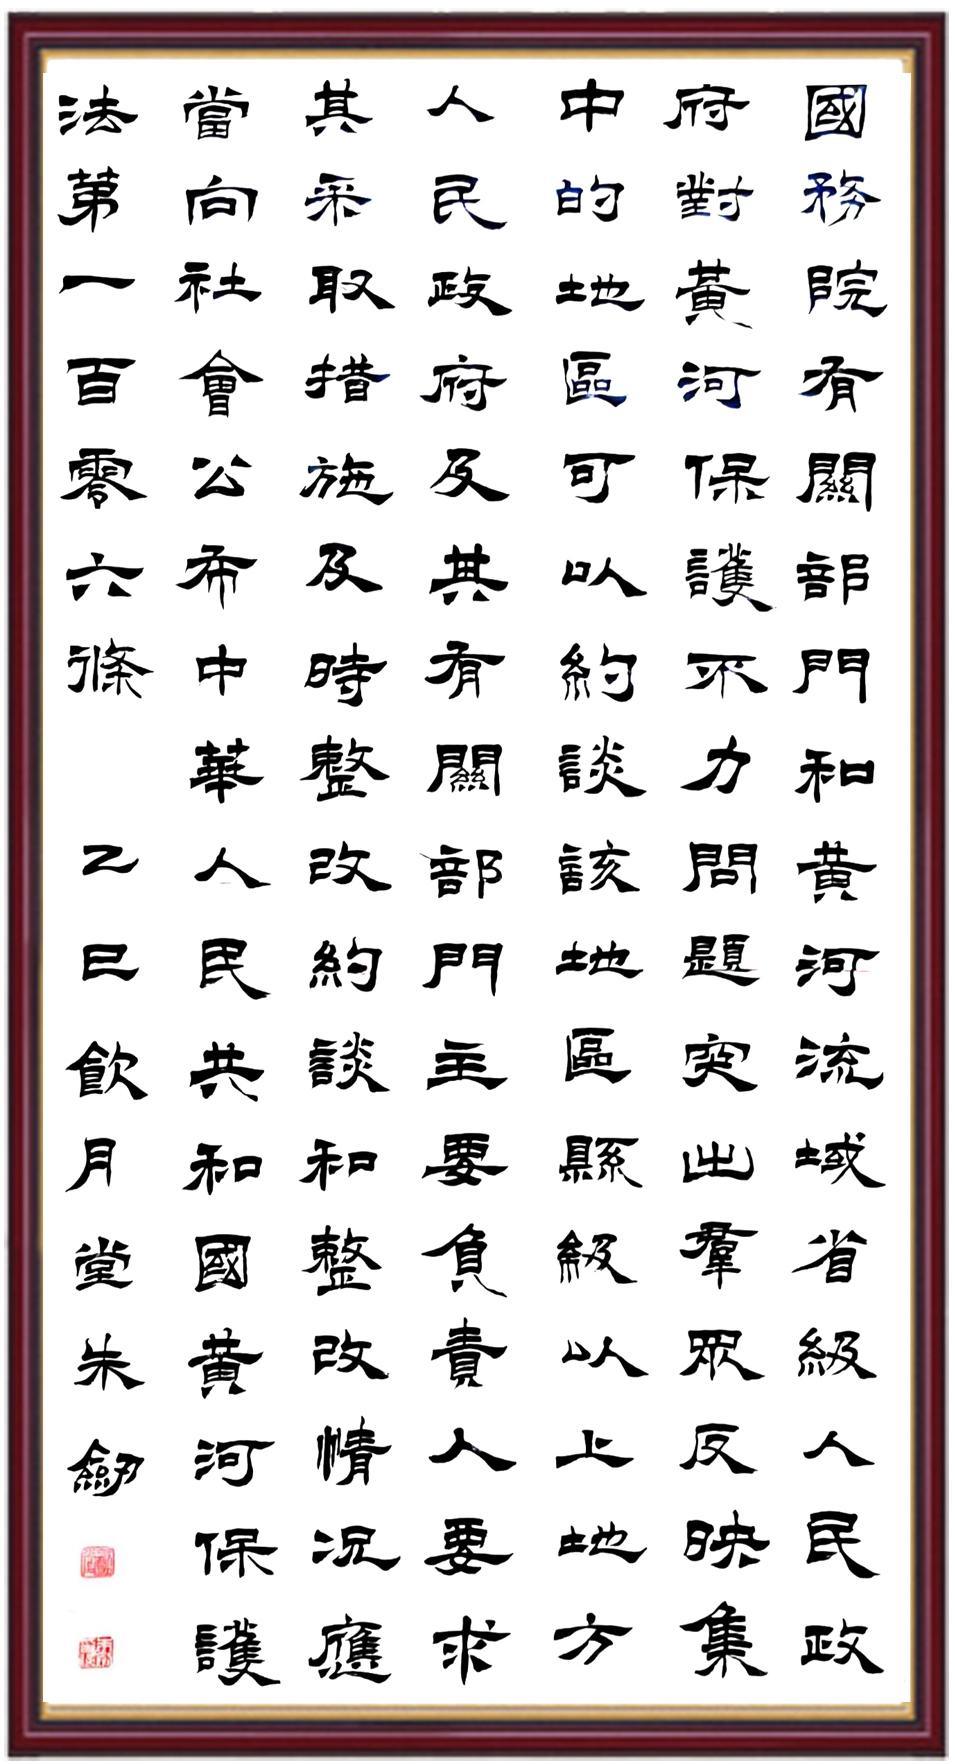 國務院有關部門和黃河流域省級人民政
府對黃河保護不力問題突出羣眾反映集
中的地區可以約談該地區縣級以上地方
人民政府及其有關部門主要負責人要求
其采取措施及時整改約談和整改情况應
當向社會公布中華人民共和國黃河保護
法第一百零六條 乙巳飲月堂朱劒